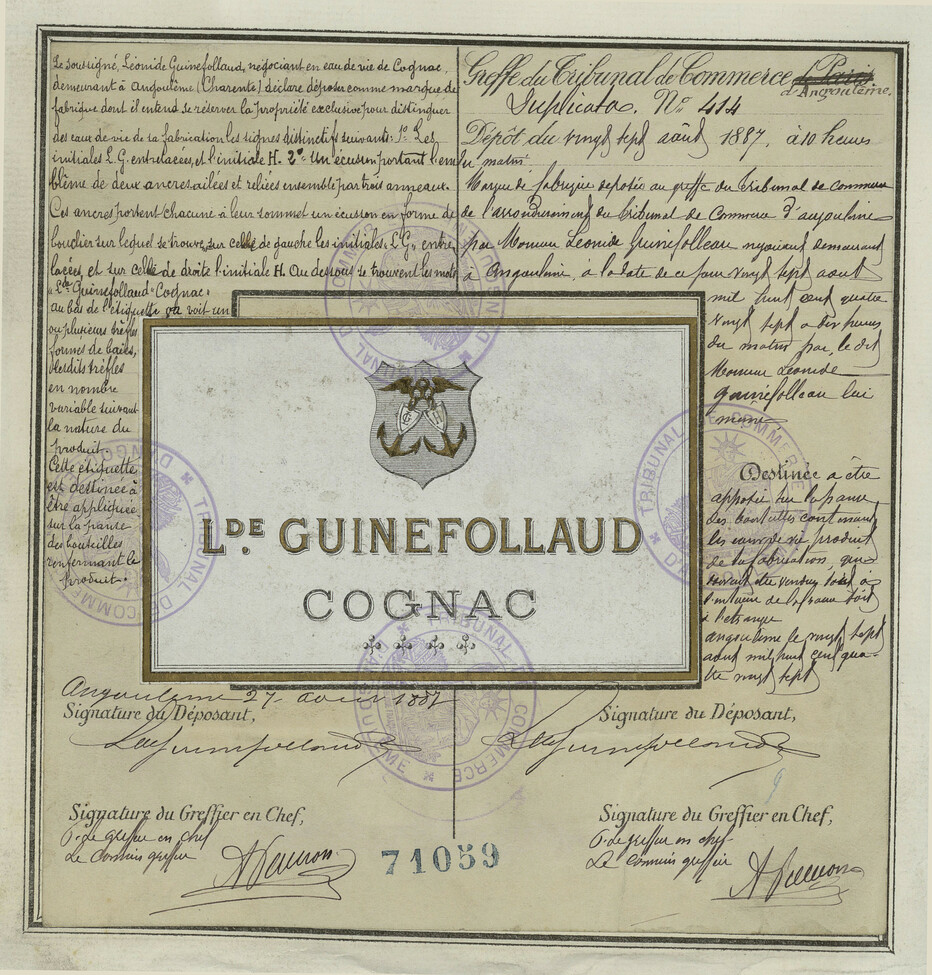 Le soussigné, Léonide Guinefollaud, négociant en eau de vie de Cognac,
demeurant à Angoulême (Charente) déclare déposer comme marque de
fabrique dont il entend se réserver la propriété exclusive pour distinguer
des eaux de vie de sa fabrication les signes distinctifs suivants: 1º Les
initiales L.G. entrelacées, et l'initiale H. 2º Un écusson portant l'em
blème de deux ancres ailées et reliées ensemble par trois anneaux.
Ces ancres portent chacune à leur sommet un écusson en forme de
bouclier sur lequel se trouve, sur celle de gauche les initiales "L G" entre
lacées, et sur celle de droite l'initiale H. Au dessous se trouvent les mots
"Lde Guinefollaud" Cognac.
au bas de l'étiquette on voit un
ou plusieurs trèfles
formés de baies,
lesdits trèfles
en nombre
variable suivant
la nature du
produit.
Cette étiquette
est destinée à
être appliquée
sur la panse
des bouteilles
renfermant le
Produit.
Greffe du Tribunal de Commerce
d'Angoulême.
Duplicata. Nº 414
Dépôt du vingt sept août 1887, à 10 heures
du matin
Marque de fabrique déposée au greffe du Tribunal de commerce
de l'arrondissement du Tribunal de Commerce d'angoulême
par Monsieur Léonide Guinefolleau négociant demeurant
à Angoulême, à la date de ce jour vingt sept aout
mil huit cent quatre
vingt sept a dix heures
du matin par le dit
Monsieur Léonide
Guinéfolleau lui
même.
Destinée a être
apposée sur la panse
des bouteilles contenant
les eaux de vie produit
de sa fabrication, qui
doivent être vendues soit à
l'intérieur de la france soit
à l'étranger
angoulême le vingt sept
aout mil huit cent qua-
tre vingt sept
G H
LDE. GUINEFOLLAUD
COGNAC
TRIBUNAL DE COMMERCE D'ANGOULEME
TRIBUNAL DE COMMERCE D'ANGOULEME
TRIBUNAL DE COMMERCE D'ANGOULEME
TRIBUNAL DE COMMERCE D'ANGOULEME
Angoulême 27 août 1887
Signature du Déposant,
Signature du Déposant,
Signature du Greffier en Chef,
P. le greffier en chef
Le commis greffier
71059
Signature du Greffier en Chef,
P. le greffier en chef
Le commis greffier